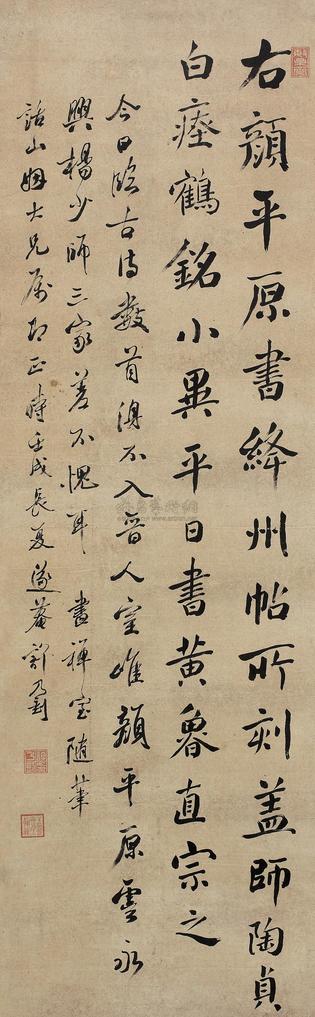 右顏平原書絳州帖所刻蓋師陶貞
白瘞鶴銘小異平日書黃魯直宗之
今日臨古詩數首俱不入晉人室唯顏平原虞永
興楊少師三家差不愧耳 畫禪室隨筆
詁山姻大兄屬即正時壬戌長夏遂菴許乃釗